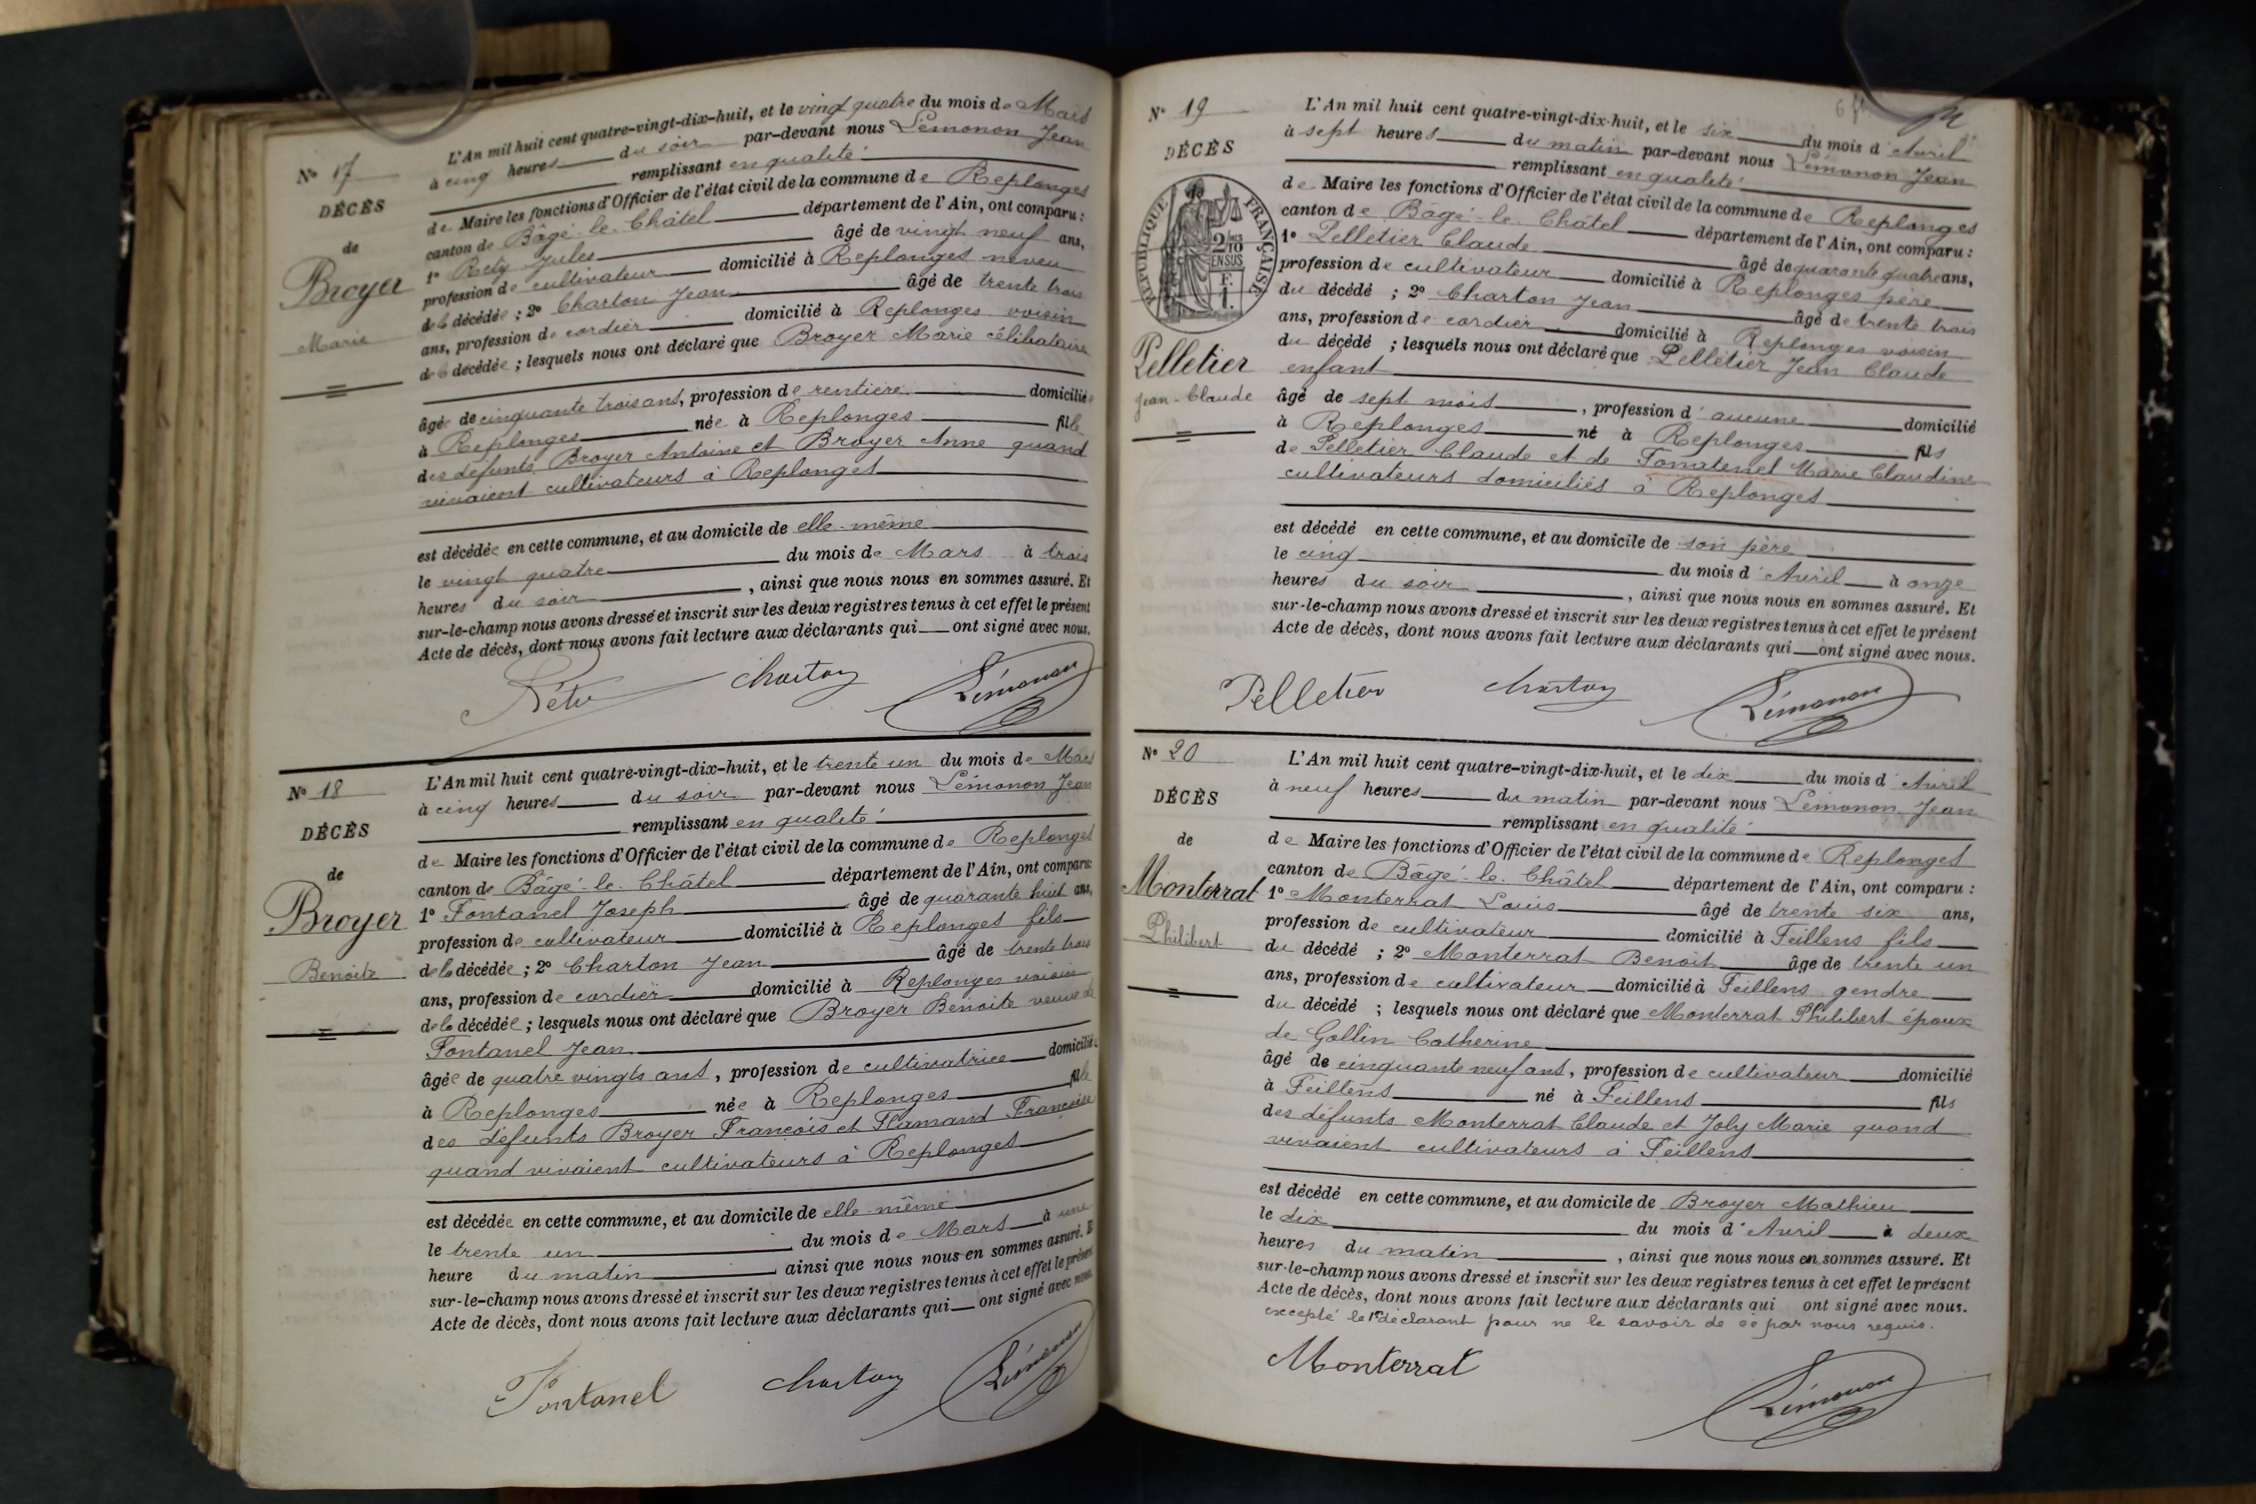 N° 17
DÉCÈS
de
Broyer
Marie
L'An mil huit cent quatre-vingt-dix-huit, et le vingt quatre du mois de Mars
à cinq heures du soir par-devant nous Lémonon Jean
remplissant en qualité
de Maire les fonctions d'Officier de l'état civil de la commune de Replonges
canton de Bâgé-le-Châtel département de l'Ain, ont comparu :
1° Réty Jules âgé de vingt neuf ans,
profession de cultivateur domicilié à Replonges neveu
de la décédée ; 2° Charton Jean âgé de trente trois
ans, profession de cordier domicilié à Replonges voisin
de la décédée ; lesquels nous ont déclaré que Broyer Marie célibataire
âgée de cinquante trois ans, profession de rentière domiciliée
à Replonges née à Replonges fille
des défunts Broyer Antoine et Broyer Anne quand
vivaient cultivateurs à Replonges
est décédée en cette commune, et au domicile de elle-même
le vingt quatre du mois de Mars à trois
heures du soir, ainsi que nous nous en sommes assuré. Et
sur-le-champ nous avons dressé et inscrit sur les deux registres tenus à cet effet le présent
Acte de décès, dont nous avons fait lecture aux déclarants qui ont signé avec nous.
Réty Charton Lémonon
N° 18
DÉCÈS
de
Broyer
Benoite
L'An mil huit cent quatre-vingt-dix-huit, et le trente un du mois de Mars
à cinq heures du soir par-devant nous Lémonon Jean
remplissant en qualité
de Maire les fonctions d'Officier de l'état civil de la commune de Replonges
canton de Bâgé-le-Châtel département de l'Ain, ont comparu:
1° Fontanel Joseph âgé de quarante huit ans,
profession de cultivateur domicilié à Replonges fils
de la décédée ; 2° Charton Jean âgé de trente trois
ans, profession de cordier domicilié à Replonges voisin
de la décédée ; lesquels nous ont déclaré que Broyer Benoite veuve de
Fontanel Jean
âgée de quatre vingts ans, profession de cultivatrice domiciliée
à Replonges née à Replonges fille
des défunts Broyer François et Flamand Françoise
quand vivaient cultivateurs à Replonges
est décédée en cette commune, et au domicile de elle-même
le trente un du mois de Mars à une
heure du matin, ainsi que nous nous en sommes assuré. Et
sur-le-champ nous avons dressé et inscrit sur les deux registres tenus à cet effet le présent
Acte de décès, dont nous avons fait lecture aux déclarants qui ont signé avec nous.
Fontanel Charton Lémonon
N° 19
DÉCÈS
de
RÉPUBLIQUE FRANÇAISE
2/10
EN SUS
Pelletier
Jean-Claude
L'An mil huit cent quatre-vingt-dix-huit, et le six du mois d'Avril
à sept heures du matin par-devant nous Lémonon Jean
remplissant en qualité
de Maire les fonctions d'Officier de l'état civil de la commune de Replonges
canton de Bâgé-le-Châtel département de l'Ain, ont comparu :
1° Pelletier Claude âgé de quarante quatre ans,
profession de cultivateur domicilié à Replonges père
du décédé ; 2° Charton Jean âgé de trente trois
ans, profession de cordier domicilié à Replonges voisin
du décédé ; lesquels nous ont déclaré que Pelletier Jean Claude
enfant
âgé de sept mois, profession d'aucune domicilié
à Replonges né à Replonges fils
de Pelletier Claude et de Fonatenel Marie Claudine
cultivateurs domiciliés à Replonges
est décédé en cette commune, et au domicile de son père
le cinq du mois d'Avril à onze
heures du soir, ainsi que nous nous en sommes assuré. Et
sur-le-champ nous avons dressé et inscrit sur les deux registres tenus à cet effet le présent
Acte de décès, dont nous avons fait lecture aux déclarants qui ont signé avec nous.
Pelletier Charton Lémonon
N° 20
DÉCÈS
de
Monterrat
Philibert
L'An mil huit cent quatre-vingt-dix-huit, et le dix du mois d'Avril
à neuf heures du matin par-devant nous Lémonon Jean
remplissant en qualité
de Maire les fonctions d'Officier de l'état civil de la commune de Replonges
canton de Bâgé-le-Châtel département de l'Ain, ont comparu :
1° Monterrat Louis âgé de trente six ans,
profession de cultivateur domicilié à Feillens fils
du décédé ; 2° Monterrat Benoit âgé de trente un
ans, profession de cultivateur domicilié à Feillens gendre
du décédé ; lesquels nous ont déclaré que Monterrat Philibert époux
de Gollin Catherine
âgé de cinquante neuf ans, profession de cultivateur domicilié
à Feillens né à Feillens fils
des défunts Monterrat Claude et Joly Marie quand
vivaient cultivateurs à Feillens
est décédé en cette commune, et au domicile de Broyer Mathieu
le dix du mois d'Avril à deux
heures du matin, ainsi que nous nous en sommes assuré. Et
sur-le-champ nous avons dressé et inscrit sur les deux registres tenus à cet effet le présent
Acte de décès, dont nous avons fait lecture aux déclarants qui ont signé avec nous.
excepté le 1er déclarant pour ne le savoir de ce par nous requis.
Monterrat Lémonon